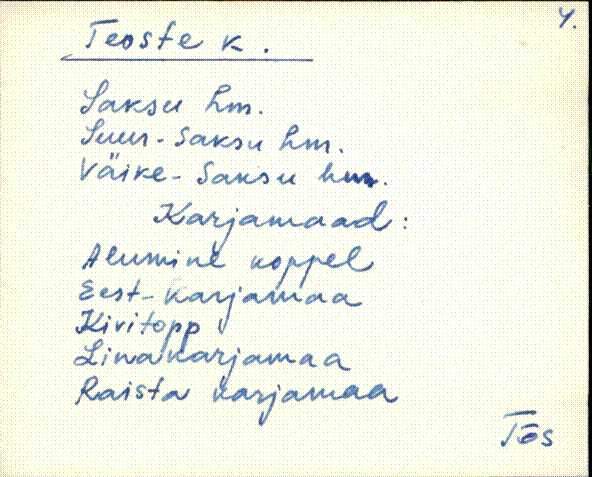 4.
Teoste k.
Saksu hm.
Suur-Saksu hm.
Väike-Saksu hm.
Karjamaad:
Alumine koppel
Eest-karjamaa
Kivitopp
Linakarjamaa
Raista karjamaa
Tõs